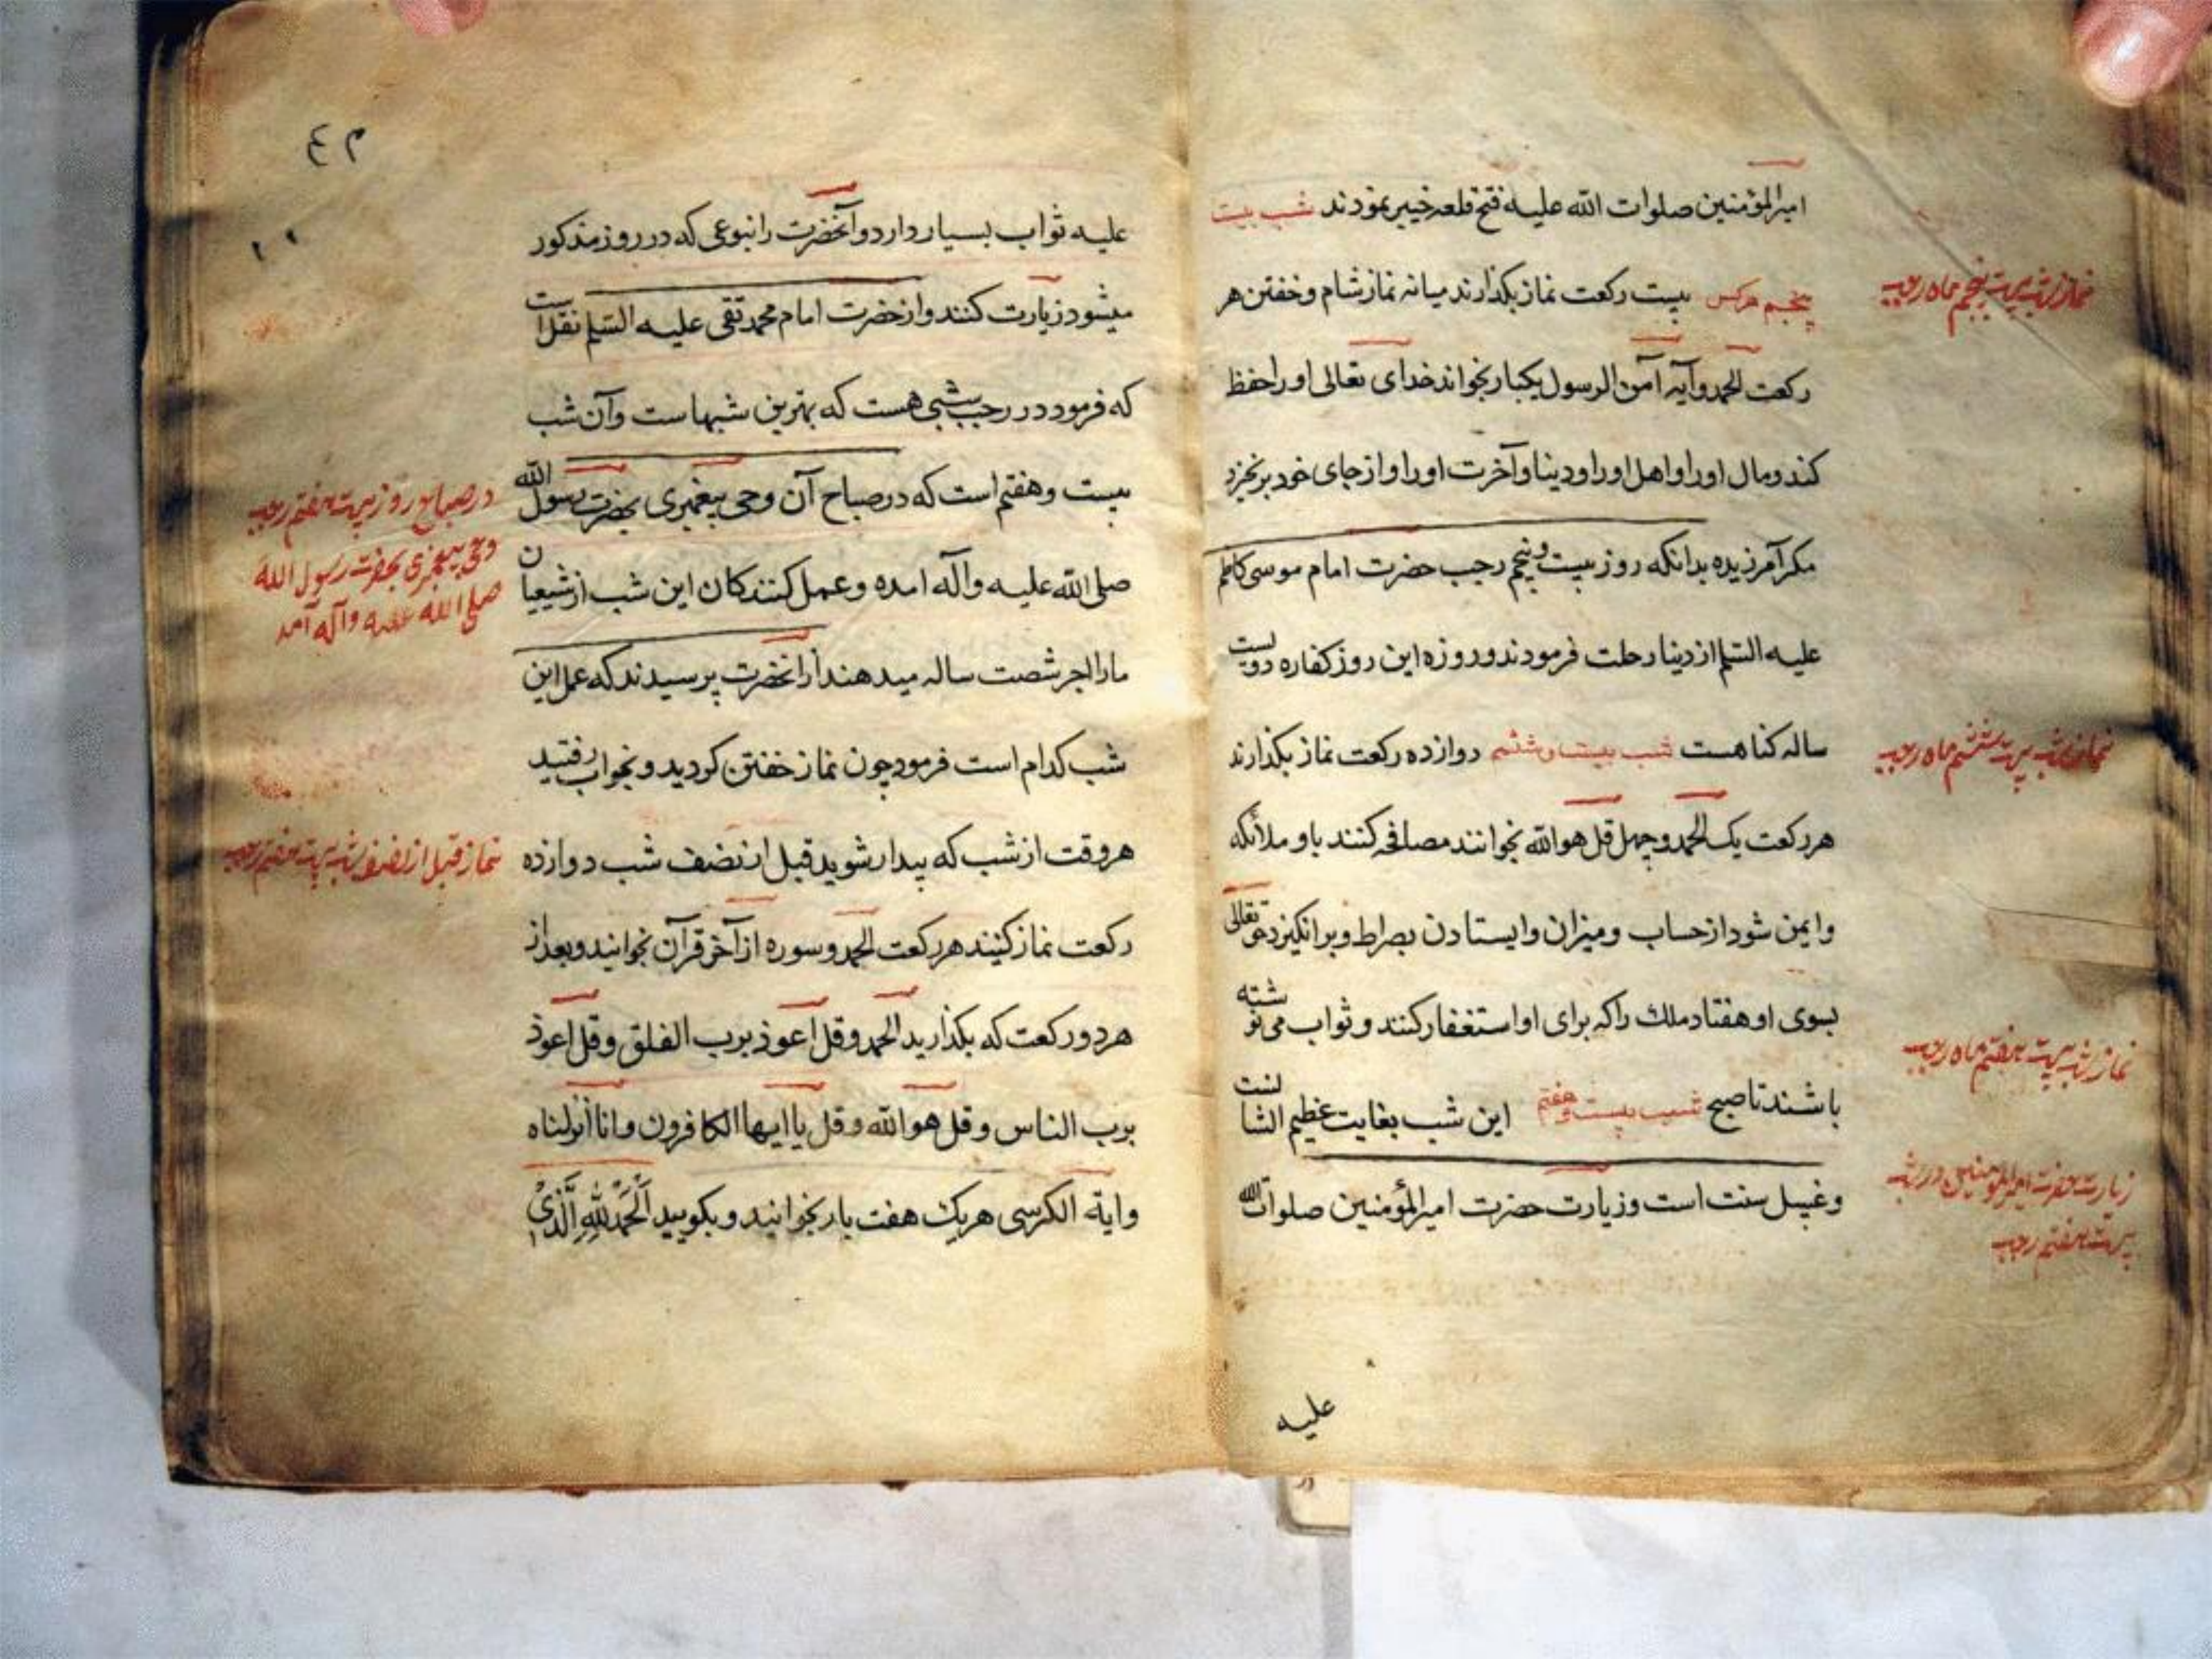 امیرالمؤمنین صلوات الله علیه فتح قلعه خیبر نمودند شب بیست
پنجم هرکس بیست رکعت نماز بکذارند میانه نماز شام و خفتن هر
رکعت الحمد وآیه آمن الرسول یکبار بخواند خدای تعالی او را حفظ
کند ومال او را واهل او را ودینا وآخرت او را واز جای خود برنخیزد
مکر آمرزیده بدانکه روز بیست وپنجم رجب حضرت امام موسی کاظم
علیه السلم از دینا رحلت فرمودند وروزه این روز کفاره دویست
ساله کناهست شب بیست وششم دوازده رکعت نماز بکذارند
هر رکعت یک الحمد وچهل قل هو الله بخوانند مصافحه کنند با و ملائکه
وایمن شود از حساب ومیزان وایستادن بصراط وبرانکیزد حق تعالی
بسوی او هفتاد ملک را که برای او استغفار کنند وثواب می نوشته
باشند تا صبح شب بیست وهفتم این شب بغایت عظیم الشانست
وغسل سنت است وزیارت حضرت امیرالمؤمنین صلوات الله
علیه
نماز شب بیست پنجم ماه رجب
نماز شب بیست ششم ماه رجب
نماز شب بیست هفتم ماه رجب
زیارت حضرت امیرالمومنین در شب
بیست هفتم رجب
علیه ثواب بسیار دارد وآنحضرت را بنوعی که در روز مذکور
میشود زیارت کنند واز حضرت امام محمد تقی علیه السلم نقل است
که فرمود در رجب شبی هست که بهترین شبهاست وآن شب
بیست وهفتم است که در صباح آن وحی پیغمبری بحضرت رسول الله
صلی الله علیه وآله امده وعمل کنندکان این شب از شیعیان
ما را اجر شصت ساله میدهند از انحضرت پرسیدند که عمل این
شب کدام است فرمود چون نماز خفتن کردید وبخواب رفتید
هر وقت از شب که بیدار شوید قبل از نصف شب دوازده
رکعت نماز کنید هر رکعت الحمد وسوره از آخر قرآن بخوانید وبعد از
هر دو رکعت که بکذارید الحمد وقل اعوذ برب الفلق وقل اعوذ
برب الناس وقل هو الله وقل یا ایها الکافرون وانا انزلناه
وایة الکرسی هریک هفت بار بخوانید وبکویید اَلْحَمْدُ لِلّٰهِ الَّذِیْ
در صباح روز بیست هفتم رجب
وحی پیغمبری بحضرت رسول الله
صلی الله علیه وآله آمد
نماز قبل از نصف شب بیست هفتم رجب